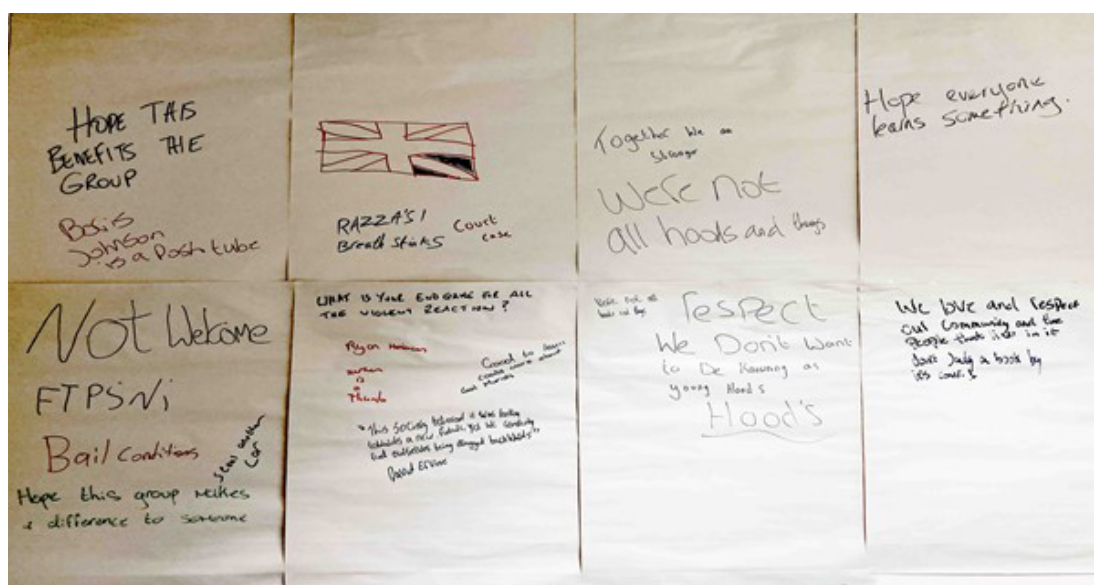 HOPE THIS
BENEFITS THE
GROUP
Boris
Johnson
is a Posh tube
RAZZA'S!
Breath Stinks
Court
case
Together We are
Stronger
We're not
all hoods and thugs
Hope everyone
learns something.
Not Welcome
FTPSNI
Bail Conditions
Steal another
Car
Hope this group makes
a difference to someone
WHAT IS YOUR END GAME FOR ALL
THE VIOLENT REACTION?
Ryan
is
a
Good to learn
more about
"This Society
a new future, yet we constantly
find ourselves being dragged backwards"
David Ervine
We're not all
hoods and thugs
respect
We Don't Want
to De Known as
young Hoods
Hood's
We love and respect
out Community and the
People that's live in it
don't Judge a book by
its cover.